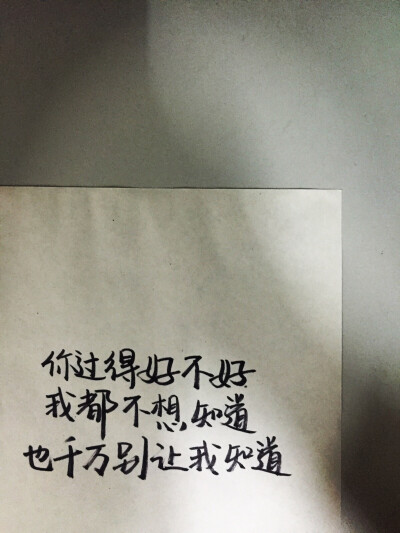 你过得好不好
我都不想知道
也千万别让我知道